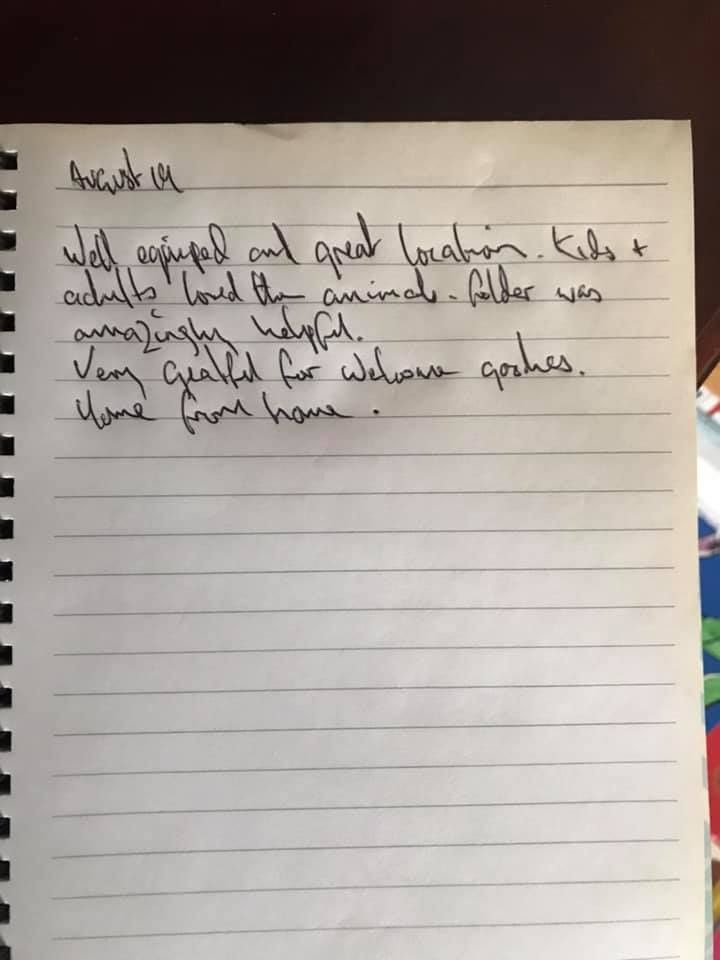 August 19
Well equiped and great location. Kids +
adults loved the animals. folder was
amazingly helpful.
Very Greatful for welcome goodies.
Home from home.